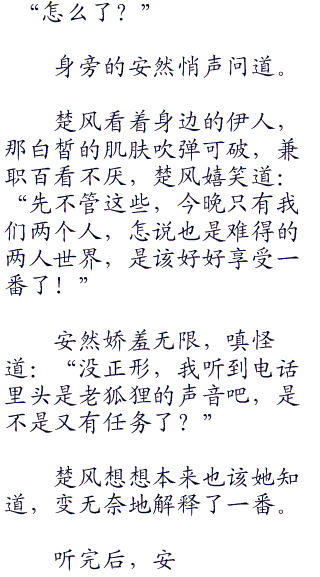 “怎么了？”
身旁的安然悄声问道。
楚风看着身边的伊人，
那白皙的肌肤吹弹可破，兼
职百看不厌，楚风嬉笑道：
“先不管这些，今晚只有我
们两个人，怎说也是难得的
两人世界，是该好好享受一
番了！”
安然娇羞无限，嗔怪
道：“没正形，我听到电话
里头是老狐狸的声音吧，是
不是又有任务了？”
楚风想想本来也该她知
道，变无奈地解释了一番。
听完后，安